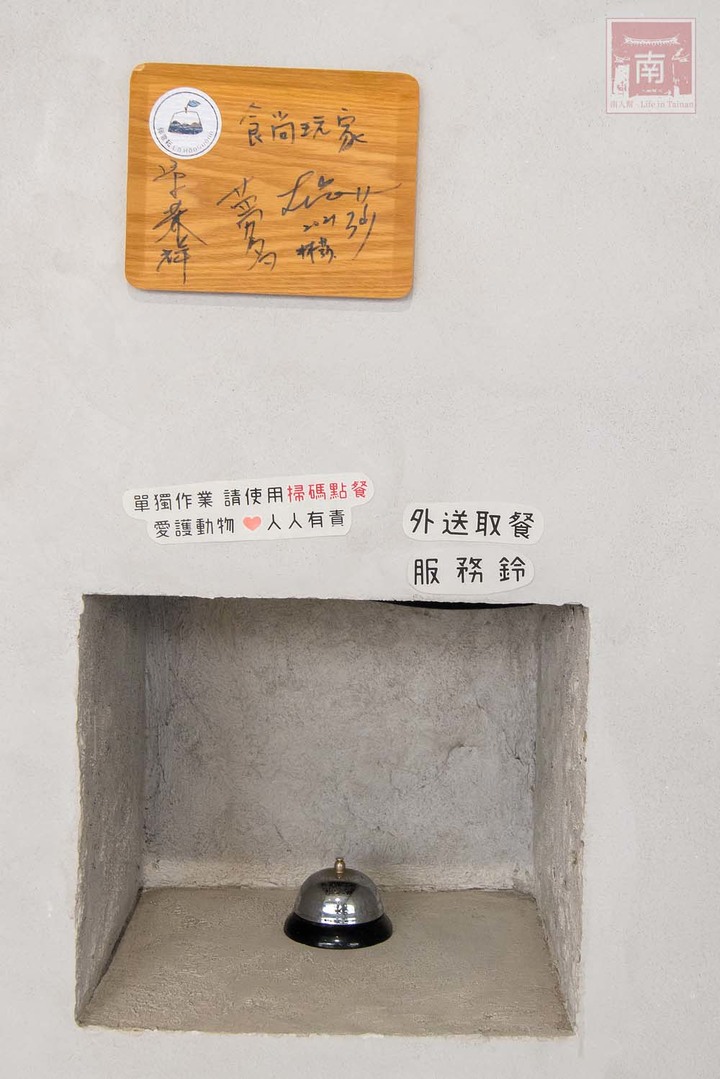 南
南人幫-Life in Tainan
食尚玩家
2021
單獨作業 請使用掃碼點餐
愛護動物❤人人有責
外送取餐
服務鈴